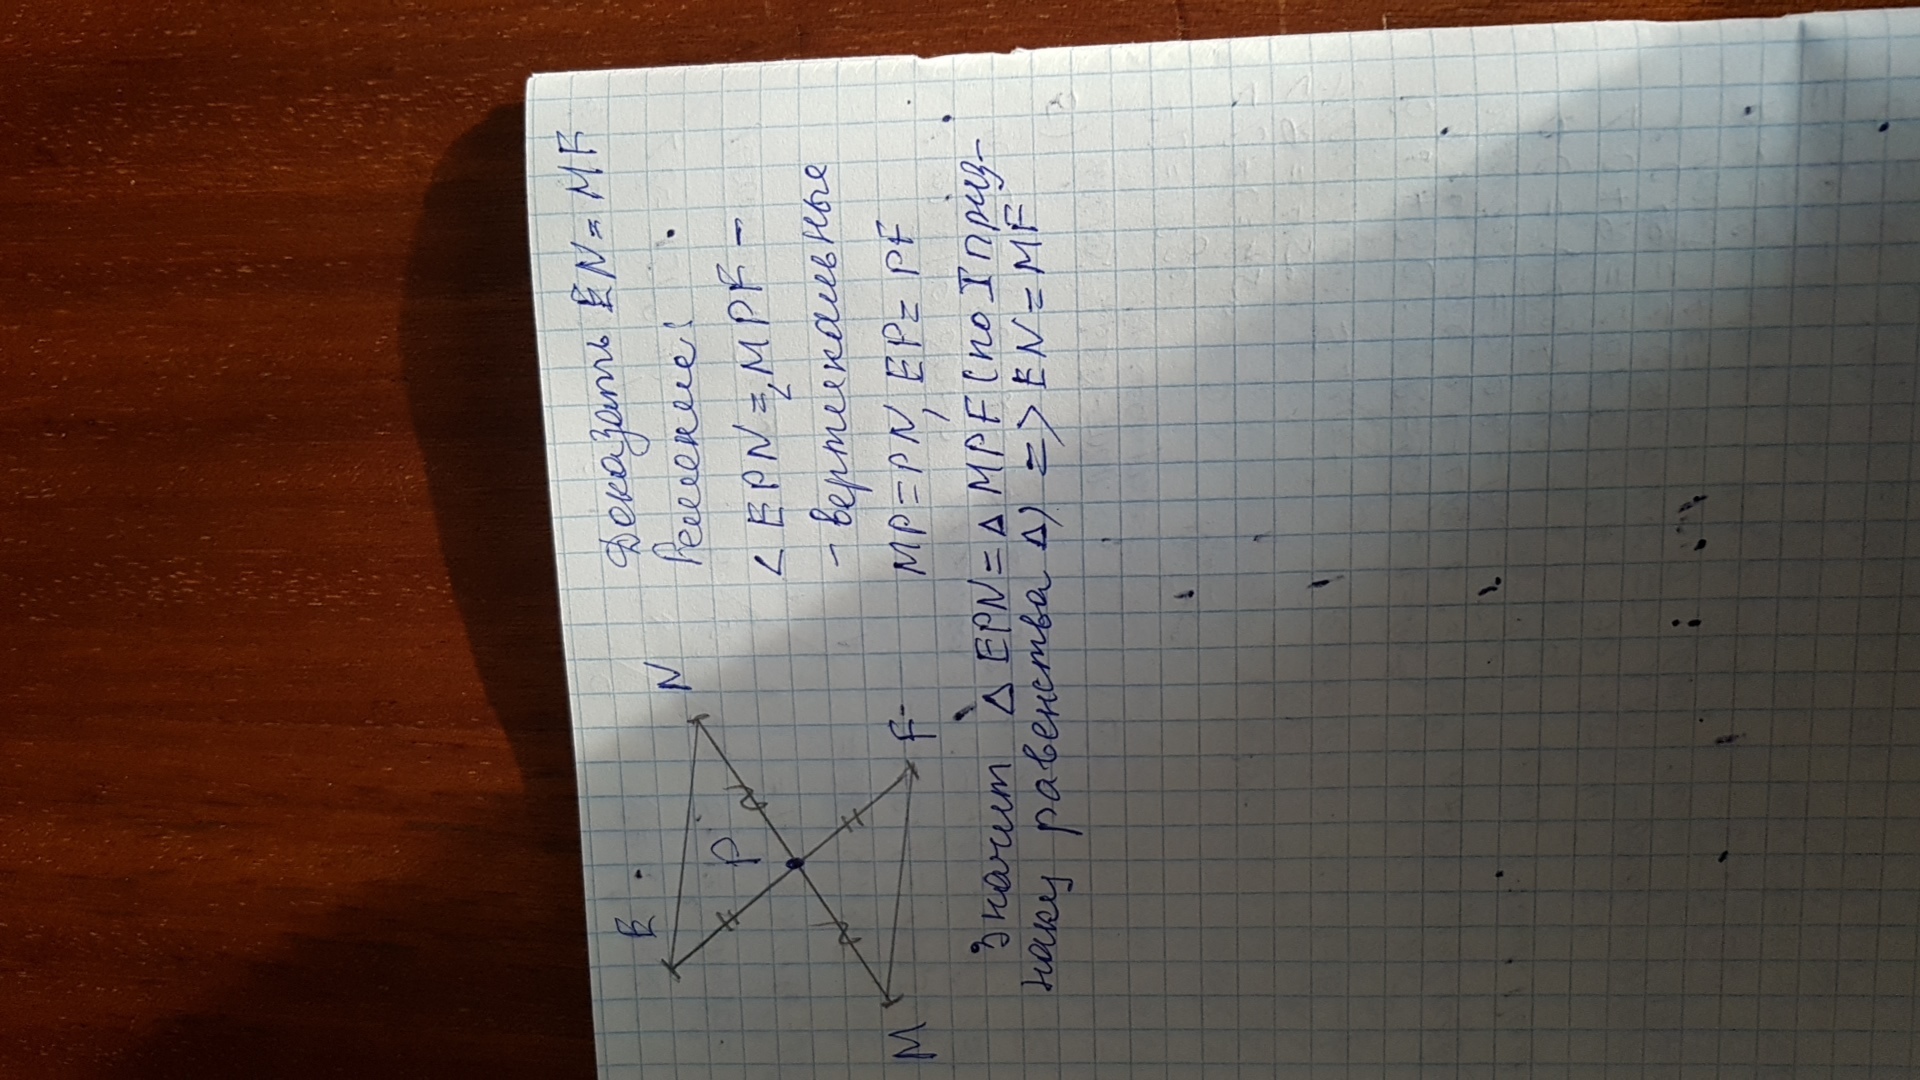 Доказать EN = MF
Решение:
∠EPN = ∠MPF -
- вертикальные
MP = PN, EP = PF
E
N
P
M
F
Значит ΔEPN = ΔMPF (по I приз-
наку равенства Δ) => EN = MF